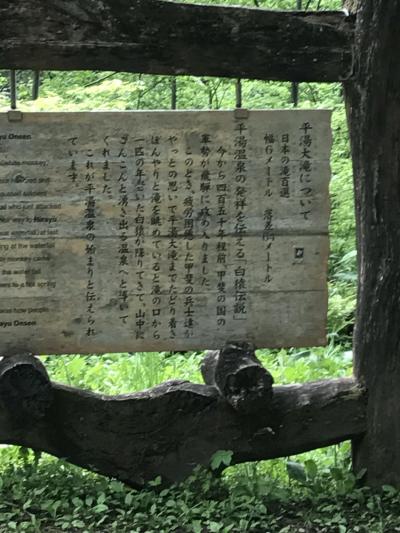 平湯大滝について
日本の滝百選
幅6メートル 落差64メートル
平湯温泉の発祥を伝える「白猿伝説」
今から四百五十年程前、甲斐の国の
軍勢が飛騨に攻め入りました。
このとき、疲労困憊した甲斐の兵士達が
やっとの思いで平湯大滝までたどり着き
ぼんやりと滝を眺めていると滝の口から
一匹の年老いた白猿が降りてきて、山中に
こんこんと湧き出る温泉へと導いて
くれました。
これが平湯温泉の始まりと伝えられ
ています。
yu Onsen
white monkey,
and
attacked
who just
way to Hirayu
at last
ng at the waterfall
monkey came
the water fall
to a hot spring
how people
ayu Onsen